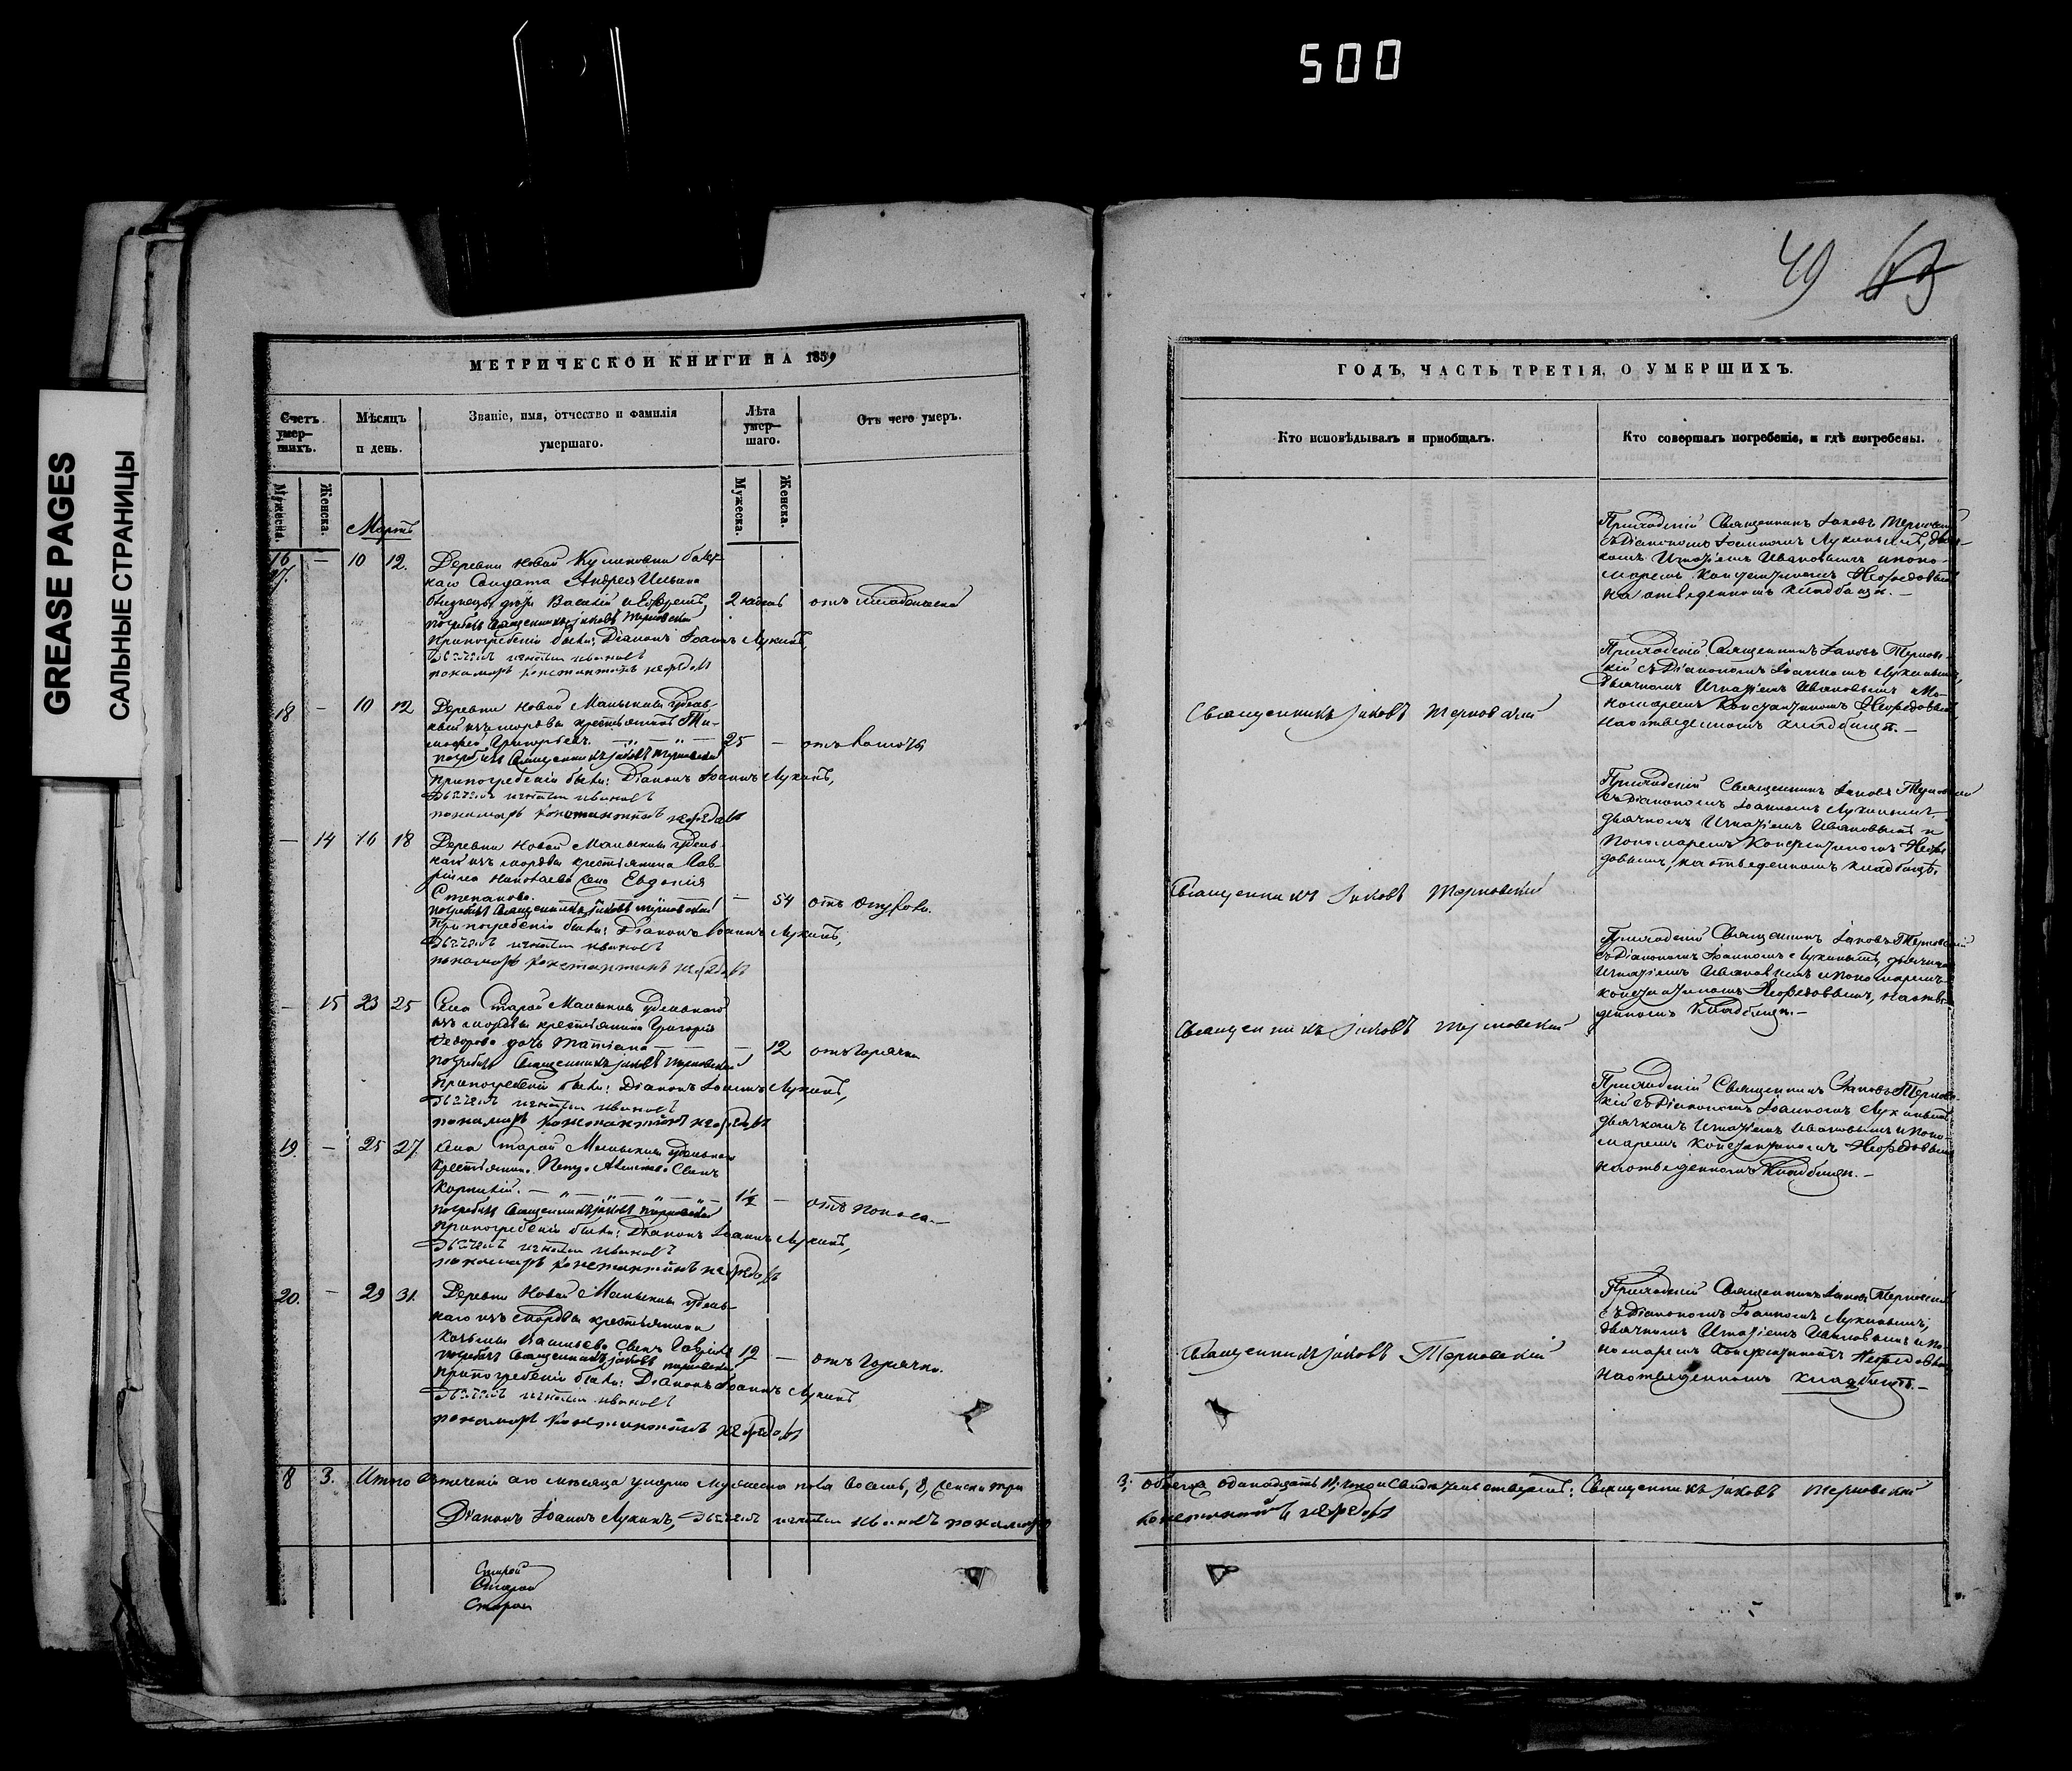 500
GREASE PAGES
САЛЬНЫЕ СТРАНИЦЫ
49
МЕТРИЧЕСКОЙ КНИГИ НА 1859
Счетъ умер-шихъ.
Мѣсяцъ и день.
Званіе, имя, отчество и фамилія умершаго.
Лѣта умер-шаго.
Отъ чего умеръ.
Мужеска.
Женска.
Мужеска.
Женска.
Мартъ
16
17.
— 10 12.
Деревни Новой Куликовки
Солдата Андрея Ильина
Василій и
2
отъ
погребалъ Священникъ Іаковъ Терновскій
при погребеніи были: Діаконъ Іоаннъ Лукинъ,
Дьячекъ Игнатій Ивановъ
пономарь Константинъ
18 — 10 12
Деревни Новой Малыклы удѣль-
изъ мордвы крестьянинъ Ти-
мофей Григорьевъ 25 —
погребалъ Священникъ Іаковъ Терновскій
при погребеніи были: Діаконъ Іоаннъ Лукинъ,
Дьячекъ Игнатій Ивановъ
пономарь Константинъ
— 14 16 18
Деревни Новой Малыклы удѣль-
наго изъ мордвы крестьянина Гав-
ріила Николаева жена Евдокія
Степанова. — 54 отъ
погребалъ Священникъ Іаковъ Терновскій
при погребеніи были: Діаконъ Іоаннъ Лукинъ,
Дьячекъ Игнатій Ивановъ
пономарь Константинъ
— 15 23 25
Села Старой Малыклы удѣльнаго
изъ мордвы крестьянина Григорія
Ѳедорова дочь Татіана — 12 отъ горячки
погребалъ Священникъ Іаковъ Терновскій
при погребеніи были: Діаконъ Іоаннъ Лукинъ,
Дьячекъ Игнатій Ивановъ
пономарь Константинъ
19. — 25 27
Села Старой Малыклы удѣльнаго
крестьянина Петра сынъ
Корнилій. 1½ — отъ поноса.—
погребалъ Священникъ Іаковъ Терновскій
при погребеніи были: Діаконъ Іоаннъ Лукинъ,
Дьячекъ Игнатій Ивановъ
пономарь Константинъ
20. — 29 31.
Деревни Новой Малыклы удѣль-
наго изъ мордвы крестьянина
Козьмы Васильева сынъ Гавріилъ — отъ горячки.
погребалъ Священникъ Іаковъ Терновскій
при погребеніи были: Діаконъ Іоаннъ Лукинъ
Дьячекъ Игнатій Ивановъ
пономарь Константинъ
8 3. Итого въ теченіи сего мѣсяца умерло мужеска пола восемь, 8, женска три
Діаконъ Іоаннъ Лукинъ, Дьячекъ Игнатій Ивановъ пономарь
Старой
Старой
Старой
ГОДЪ, ЧАСТЬ ТРЕТІЯ, О УМЕРШИХЪ.
Кто исповѣдывалъ и пріобщалъ.
Кто совершалъ погребеніе, и гдѣ погребены.
Приходскій Священникъ Іаковъ Терновскій
съ Діакономъ Іоанномъ Лукинымъ, дья-
комъ Игнатіемъ Ивановымъ и поно-
маремъ Константиномъ
на отведенномъ кладбищѣ.—
Священникъ Іаковъ Терновскій
Приходскій Священникъ Іаковъ Тернов-
скій съ Діакономъ Іоанномъ Лукинымъ,
дьячкомъ Игнатіемъ Ивановымъ и по-
номаремъ Константиномъ
на отведенномъ кладбищѣ.—
Священникъ Іаковъ Терновскій
Приходскій Священникъ Іаковъ Терновскій
съ Діакономъ Іоанномъ Лукинымъ,
дьячкомъ Игнатіемъ Ивановымъ и
пономаремъ Константиномъ
на отведенномъ кладбищѣ.
Священникъ Іаковъ Терновскій
Приходскій Священникъ Іаковъ Терновскій
съ Діакономъ Іоанномъ Лукинымъ, дьячкомъ
Игнатіемъ Ивановымъ и пономаремъ
Константиномъ на отве-
денномъ кладбищѣ.—
Приходскій Священникъ Іаковъ Тернов-
скій съ Діакономъ Іоанномъ Лукинымъ,
дьячкомъ Игнатіемъ Ивановымъ и поно-
маремъ Константиномъ
на отведенномъ кладбищѣ.—
Священникъ Іаковъ Терновскій
Приходскій Священникъ Іаковъ Терновскій
съ Діакономъ Іоанномъ Лукинымъ,
дьячкомъ Игнатіемъ Ивановымъ и по-
номаремъ Константиномъ
на отведенномъ кладбищѣ.—
3; обоего одинадцать 11; Священникъ Іаковъ Терновскій
Константинъ